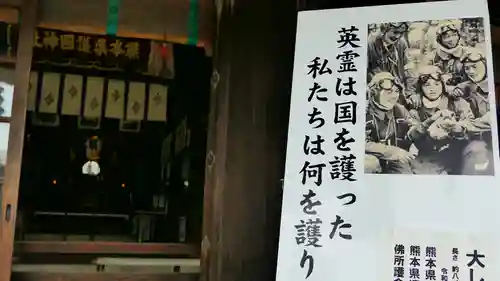 熊本縣護國神社
英霊は国を護った
私たちは何を護り
大し
長さ 約八
令和
熊本県
熊本県
佛所護念